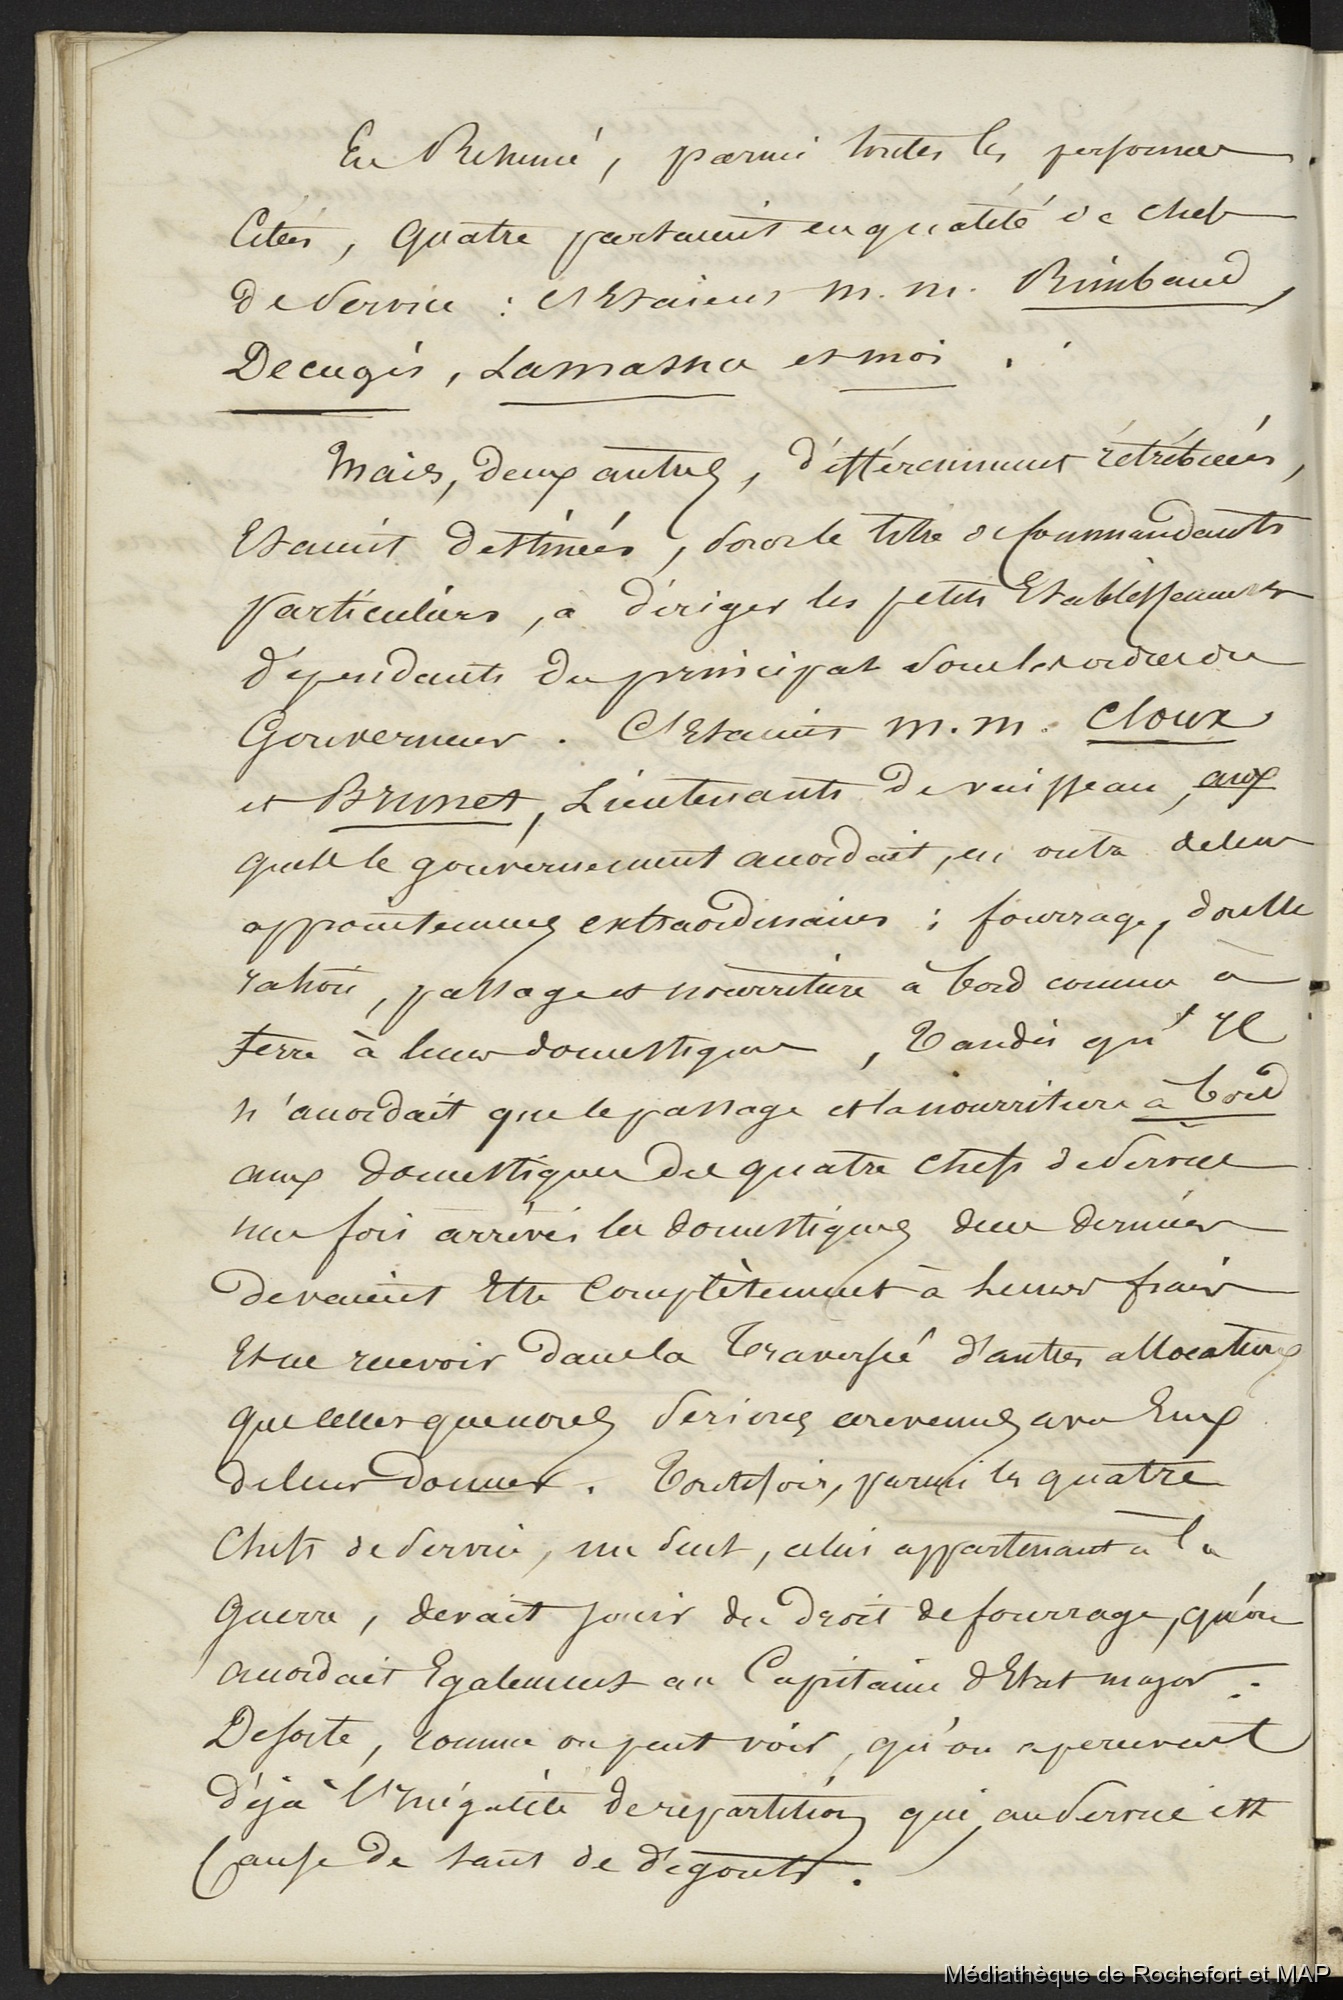 En Resumé, parmi toutes les personnes
Citées, Quatre partaient en qualité de chefs
de Service : C'Etaient M. M. Rimbaud,
Decugis, Lamasna et moi.
Mais, deux autres, différemment rétribuées,
Etaient destinées, sous le titre de Commandants
particuliers, à diriger les petits Etablissements
dépendants du principal sous les ordres du
Gouverneur. C'Etaient M. M. Cloux
et Brunet, Lieutenants de vaisseau, aux
quels le gouvernement accordait, en outre de leurs
appointemens extraordinaires : fourrage, double
ration, passage et nourriture à bord comme à
terre à leurs domestiques, Tandis qu'Il
n'accordait que le passage et la nourriture à bord
aux domestiques des quatre chefs de Service
une fois arrivés les domestiques de ces derniers
devaient Etre Complètement à leurs frais
Et ne recevoir dans la Traversée d'autres allocations
que celles que nous serions convenus avec Eux
de leur donner. Toutefois, parmi les quatre
Chefs de Service, un seul, celui appartenant à la
Guerre, devait jouir du droit de fourrage, qu'on
accordait Egalement au Capitaine d'Etat major.
De sorte, comme on peut voir, qu'on apercevait
déjà l'Inégalité de repartition qui au Service est
Cause de tant de dégouts.
Médiathèque de Rochefort et MAP